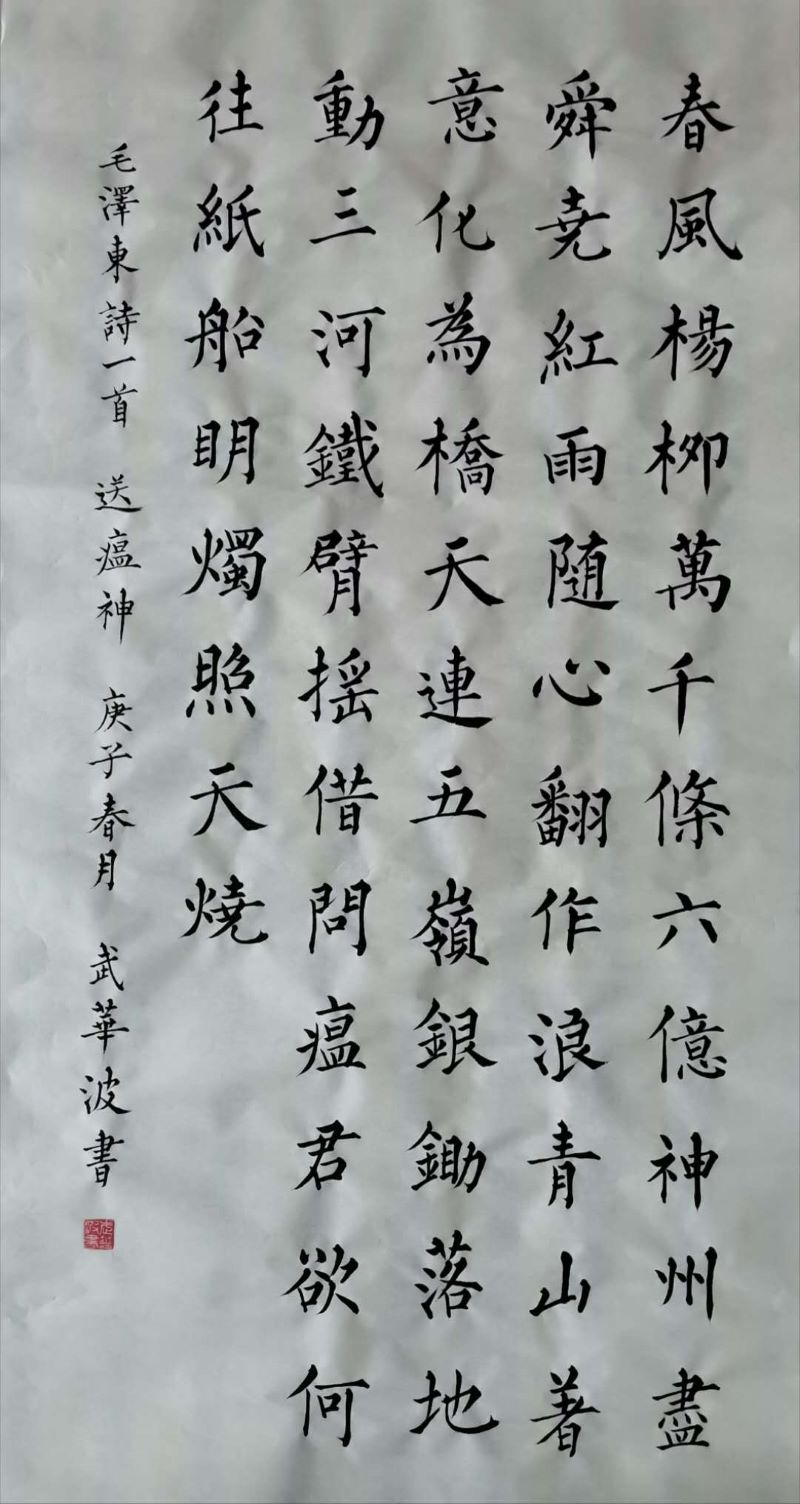 春風楊柳萬千條六億神州盡
舜尭紅雨随心翻作浪青山著
意化為橋天連五嶺銀鋤落地
動三河鐵臂搖借問瘟君欲何
往紙船明燭照天燒
毛澤東詩一首 送瘟神 庚子春月 武華波書